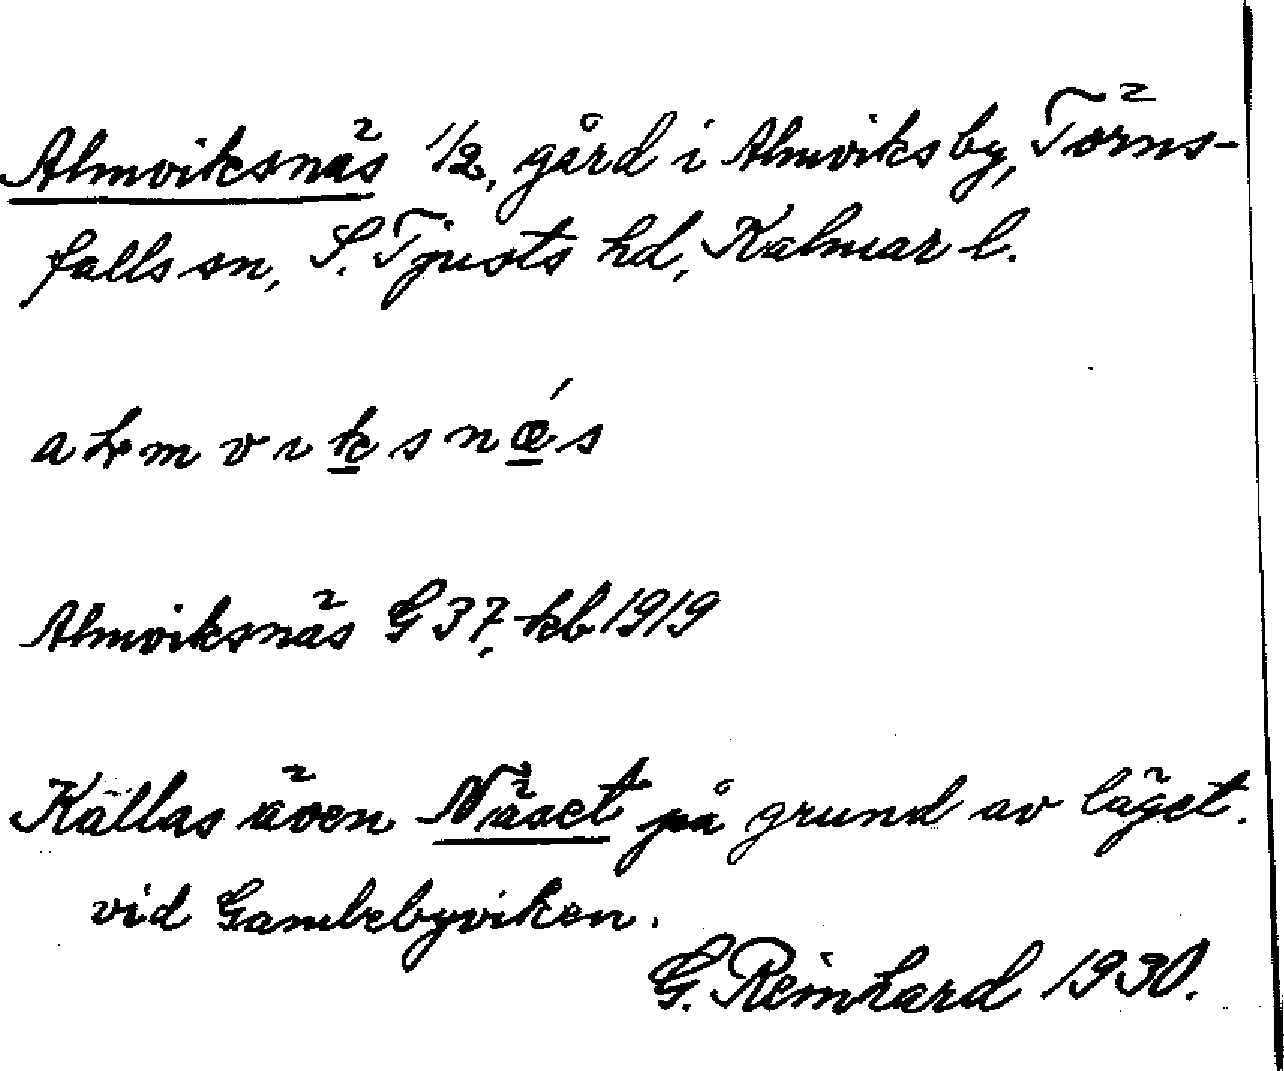 Almviksnäs 1/2, gård i Almviks by, Törns-
falls sn, S. Tjusts hd, Kalmar l.
Almviksnäs G 37, kb 1919
Kallas även Näset på grund av läget.
vid Gamlebyviken.
G. Reinhard 1930.